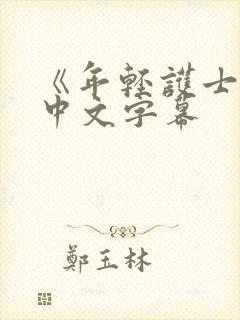 《年輕護士
中文字幕
鄭玉林